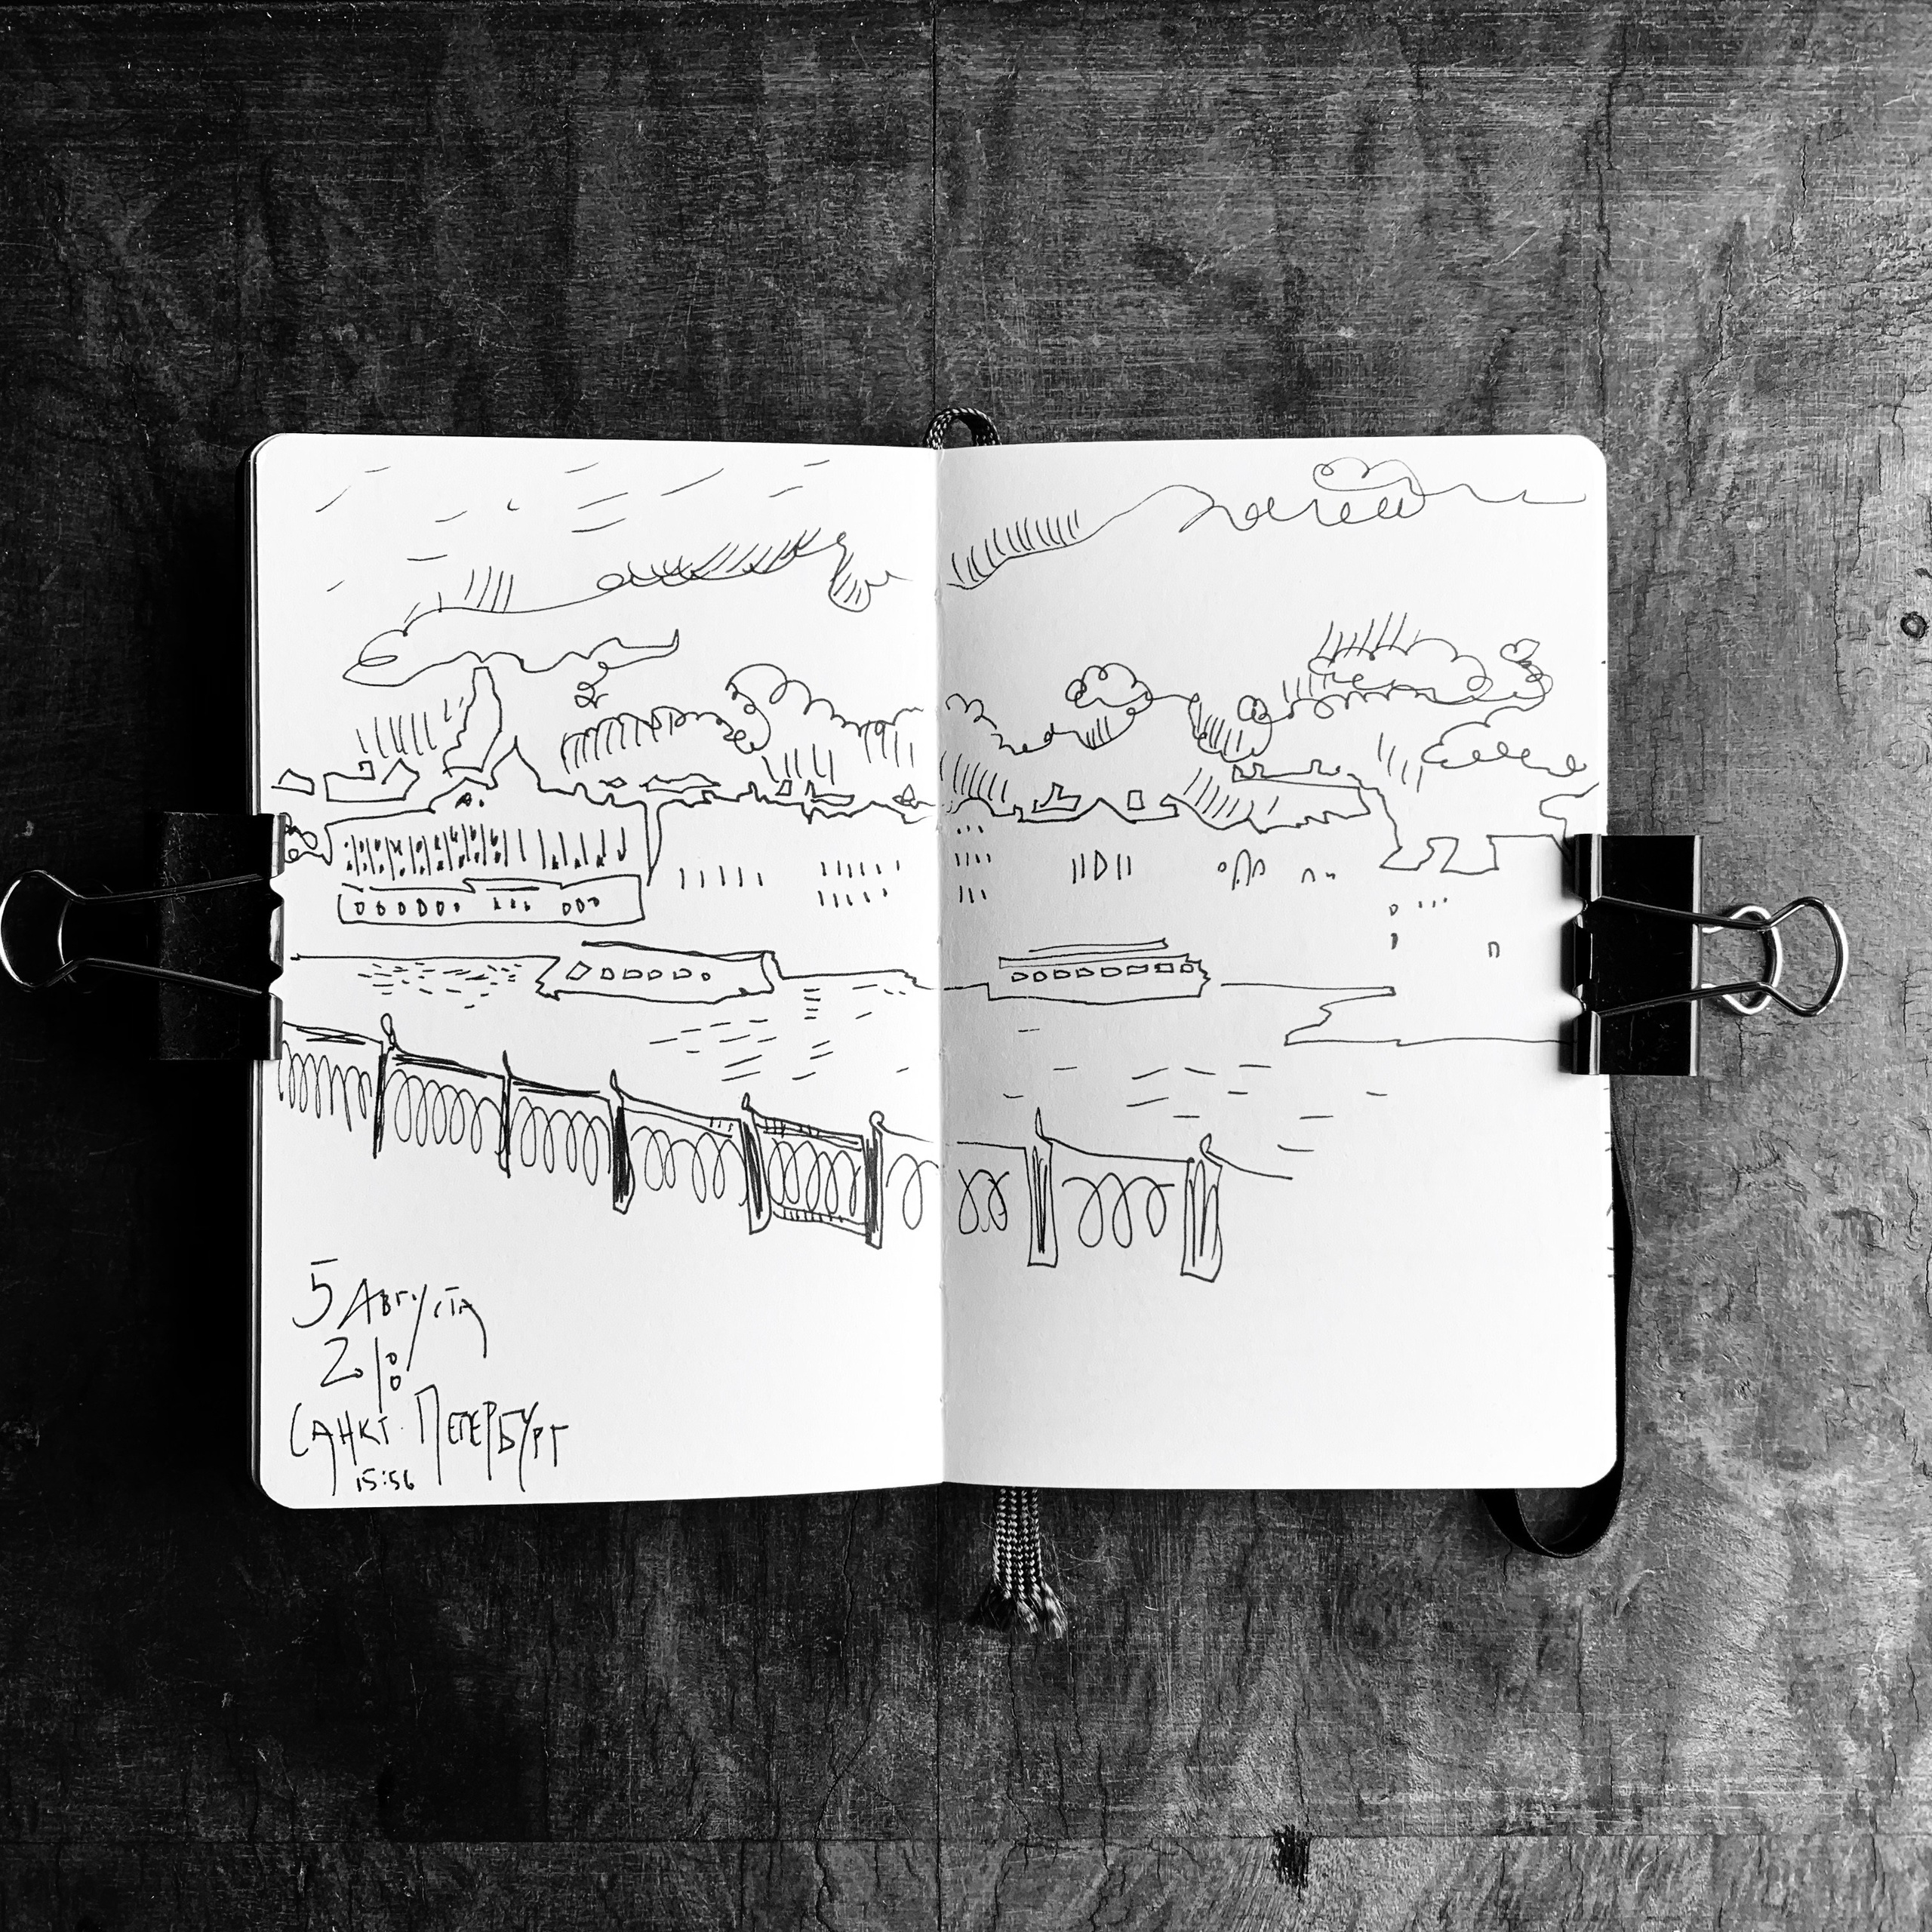 5 Августа
2018
Санкт-Петербург
15:56